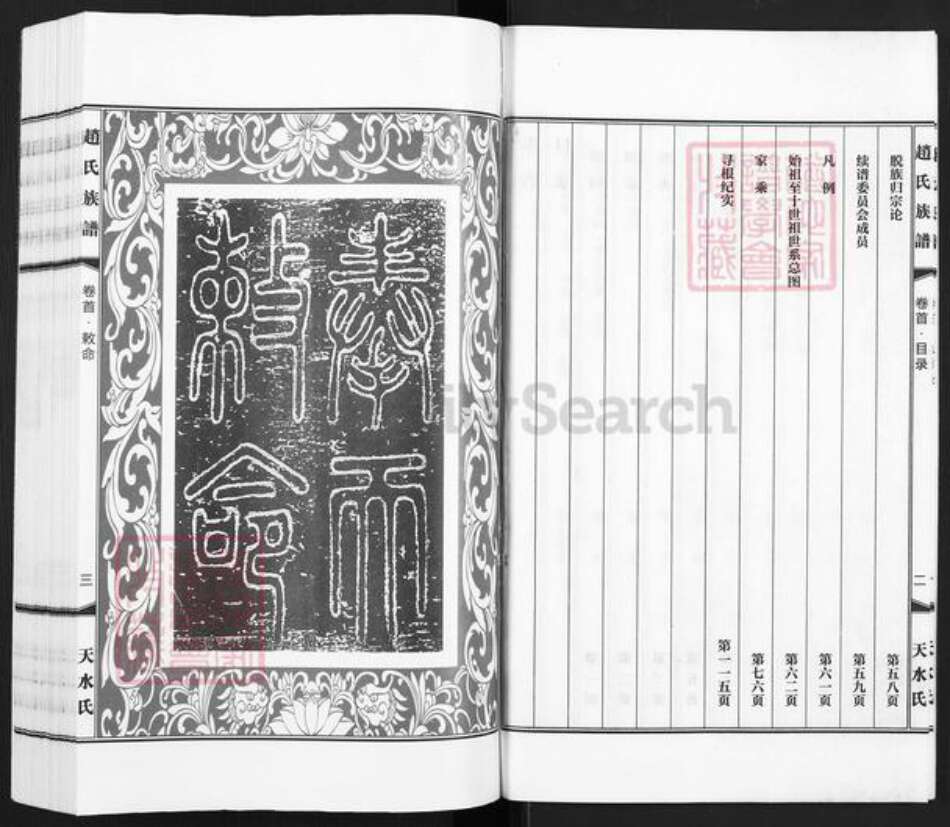 趙氏族譜
卷首·目录
二
天水氏
脱族归宗论 第五八页
续谱委员会成员 第五九页
凡例 第六一页
始祖至十世祖世系总图 第六二页
家乘 第七六页
寻根纪实 第一一五页
奉天
敕命
趙氏族譜
卷首·敕命
三
天水氏
Search